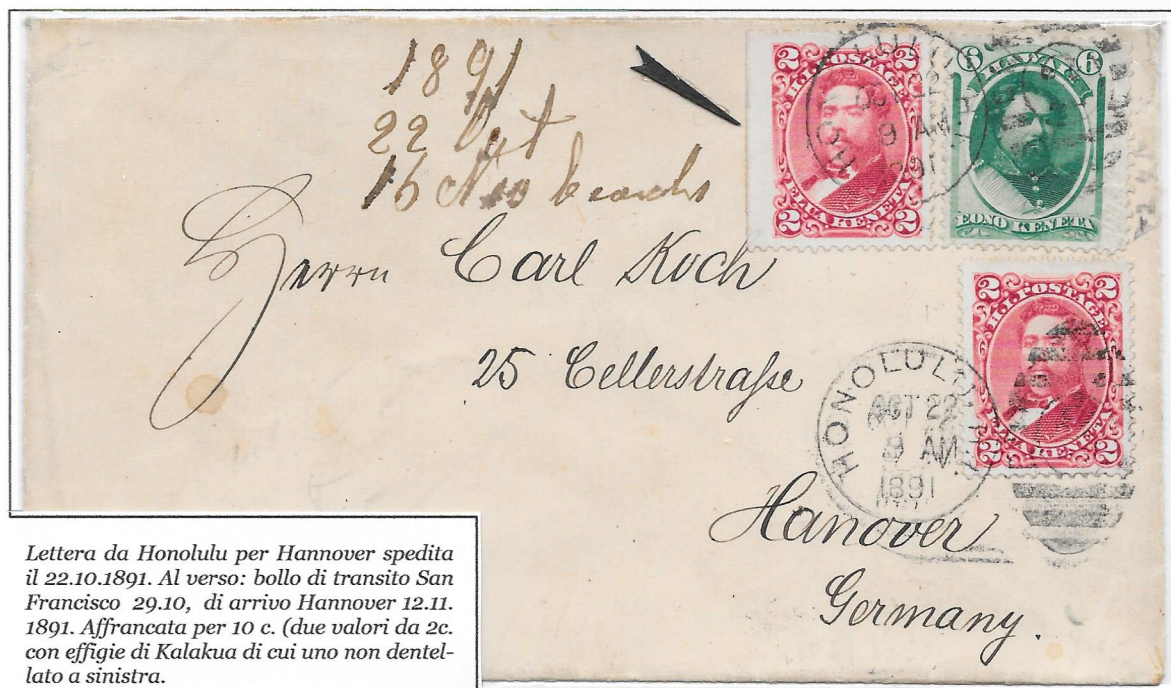 1891
22 Oct
16 Nov
Herrn Carl Koch
25 Cellerstraße
Hanover
Germany.
2 2
H.I. POSTAGE
ELUA KENETA
2 2
HONOLULU
OCT 22
9 AM
1891
6 6
HAWAII
EONO KENETA
2 2
H.I. POSTAGE
ELUA KENETA
2 2
HONOLULU
OCT 22
9 AM
1891
Lettera da Honolulu per Hannover spedita
il 22.10.1891. Al verso: bollo di transito San
Francisco 29.10, di arrivo Hannover 12.11.
1891. Affrancata per 10 c. (due valori da 2c.
con effigie di Kalakua di cui uno non dentel-
lato a sinistra.